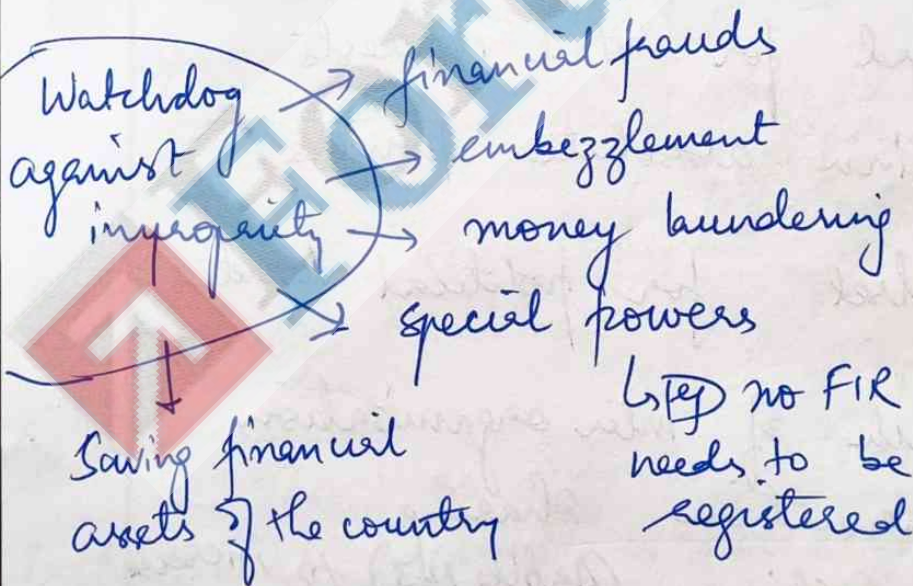 Watchdog
against
impropriety
financial frauds
embezzlement
money laundering
special powers
↳ eg no FIR
needs to be
registered
Saving financial
assets of the country